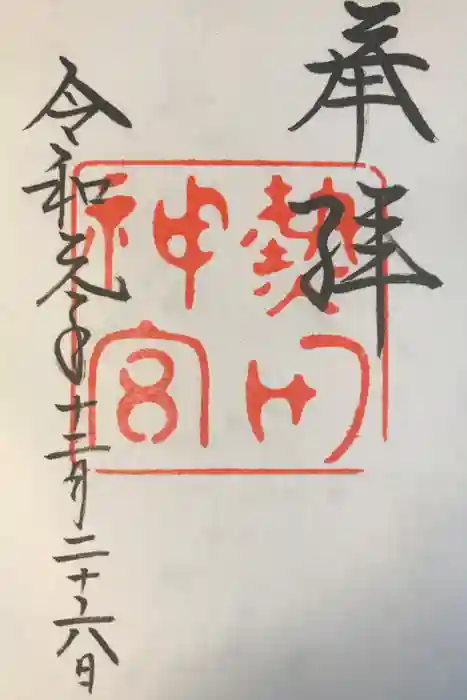 奉拝
熱田
神宮
令和元年十二月二十六日